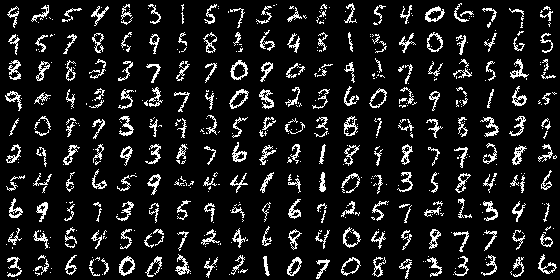 9 2 5 4 8 3 1 5 7 5 2 8 2 5 4 0 6 7 7 9
9 5 7 8 6 9 5 8 2 6 4 8 1 3 4 0 9 4 6 5
8 8 8 2 3 7 8 7 0 9 0 5 9 2 7 4 2 5 2 2
9 4 3 5 2 7 9 0 8 2 3 6 0 2 9 2 1 6
1 0 9 7 3 4 9 2 5 8 0 3 8 1 9 7 8 3 3 9
2 9 8 8 9 3 8 7 6 8 2 1 8 9 8 7 7 2 8 2
5 4 6 6 5 9 4 4 1 4 1 0 9 3 5 8 4 4 6
6 9 3 7 3 9 6 5 9 9 9 6 9 2 5 7 2 2 3 4 7
4 4 5 4 5 0 7 2 4 6 8 4 0 4 9 8 7 7 9 6
3 2 6 0 0 0 2 4 2 1 0 7 0 8 9 3 3 3 8 6